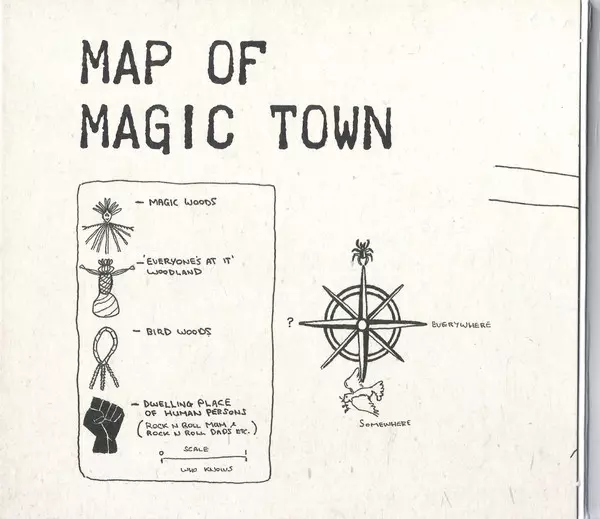 MAP OF
MAGIC TOWN
- MAGIC WOODS
- 'EVERYONE'S AT IT'
WOODLAND
- BIRD WOODS
- DWELLING PLACE
OF HUMAN PERSONS
(ROCK N ROLL MUM &
ROCK N ROLL DADS ETC.)
SCALE
0 1
WHO KNOWS
?
EVERYWHERE
SOMEWHERE